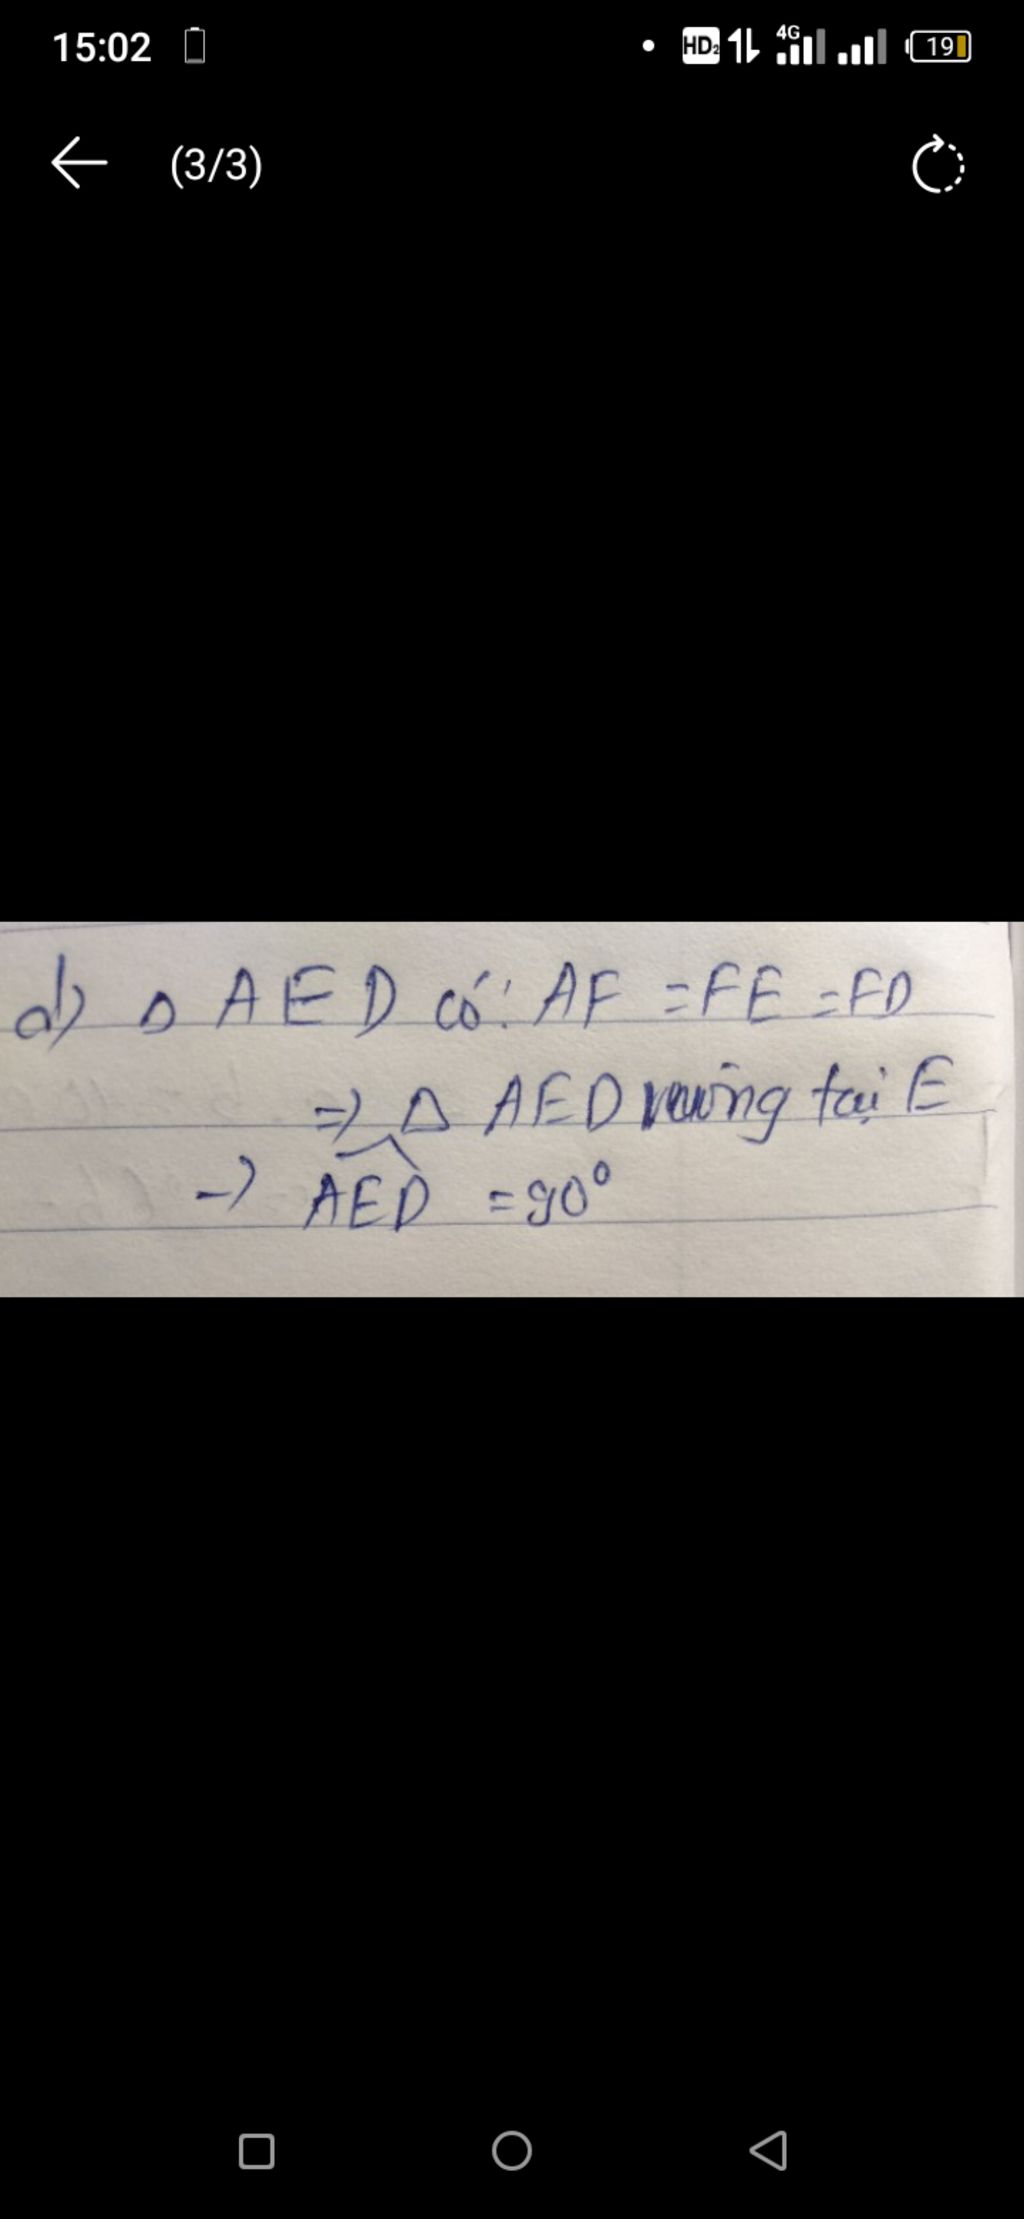 15:02 HD2 4G 19
(3/3)
d) Δ AED có: AF = FE = FD
=> Δ AED vuông tại E
-> AED = 90°